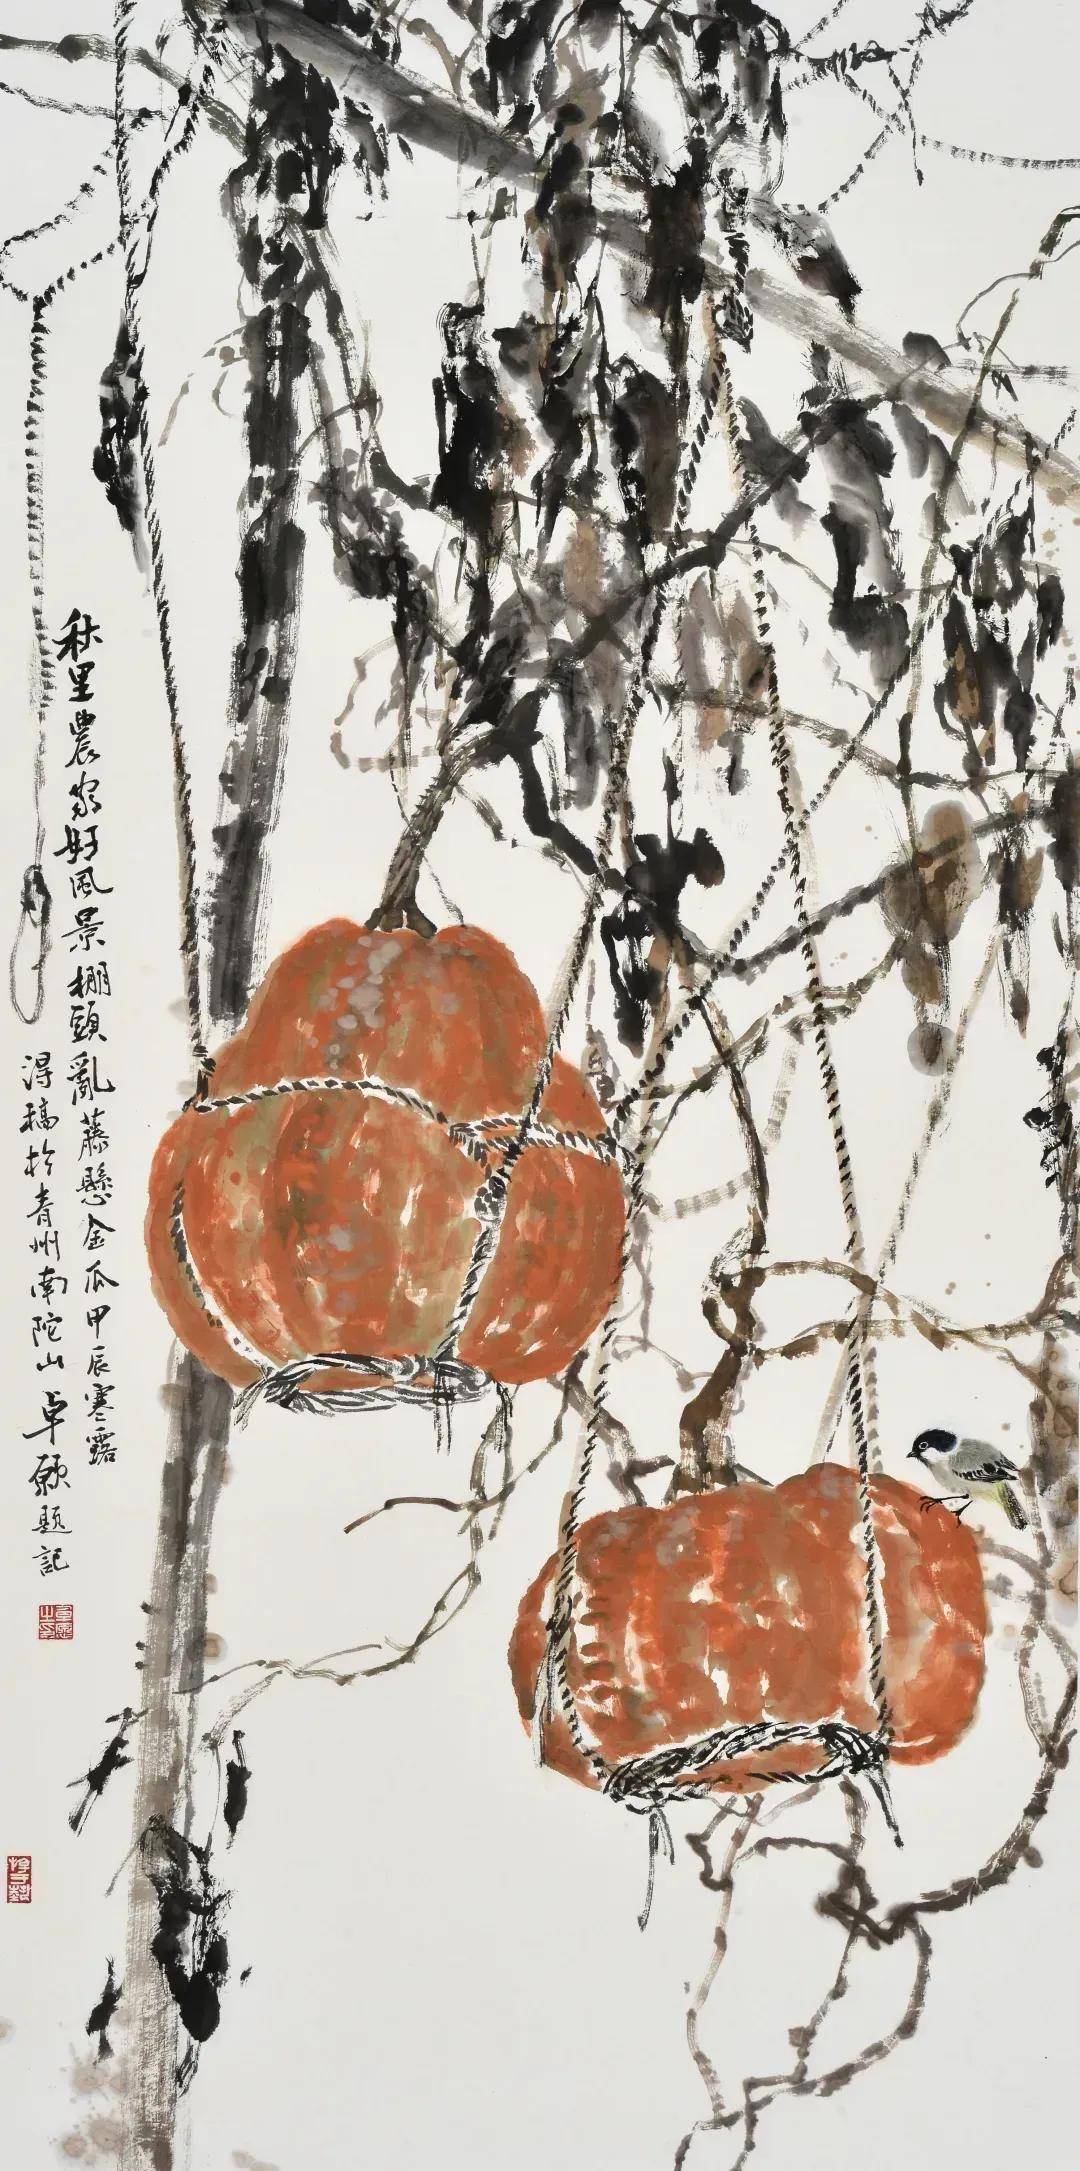 秋里農家好風景棚頭亂藤懸金瓜甲辰寒露
得稿於青州南陀山卓願題記